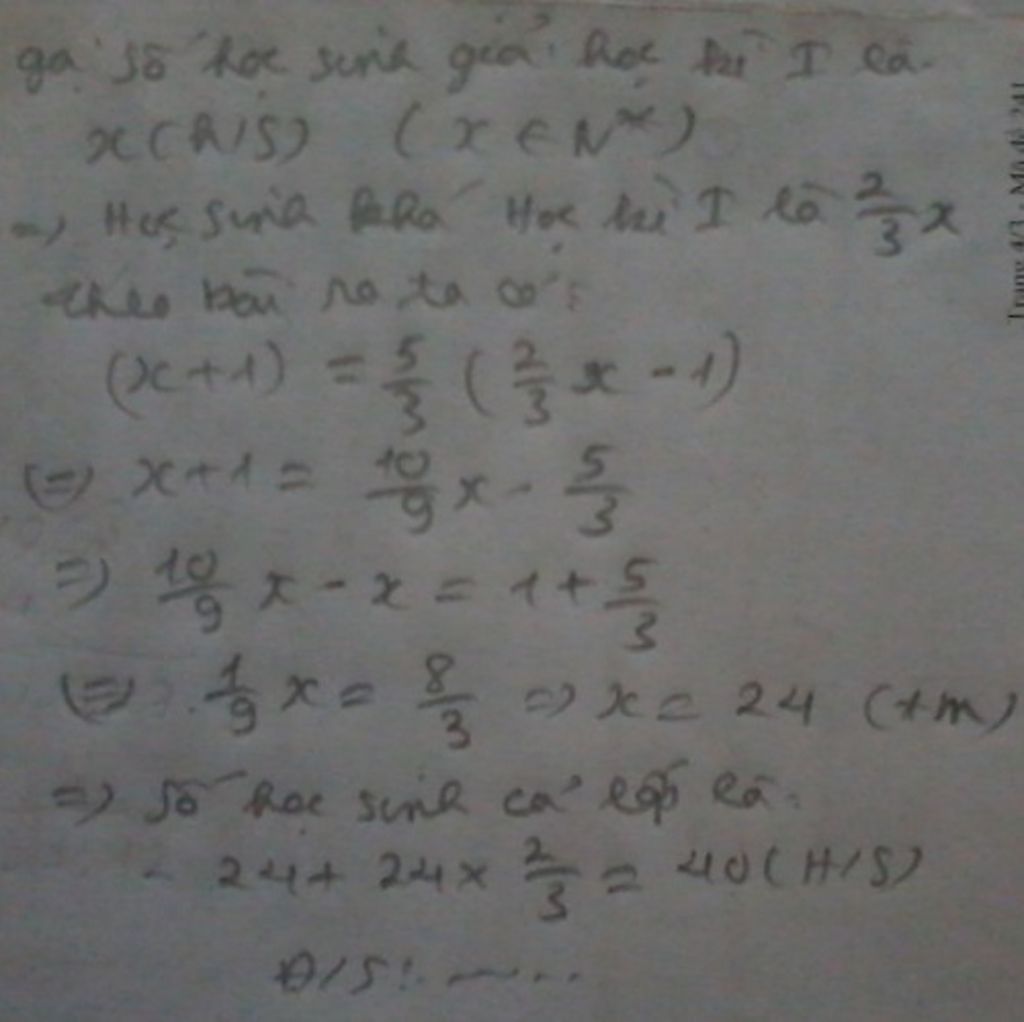 gọi số học sinh giỏi học kì I là.
x (h/s) (x ∈ N*)
=> Học sinh khá Học kì I là 2/3 x
theo bài ra ta có:
(x+1) = 5/3 (2/3 x - 1)
(=) x+1 = 10/9 x - 5/3
=) 10/9 x - x = 1 + 5/3
(=) 1/9 x = 8/3 => x = 24 (tm)
=> Số học sinh cả lớp là:
24 + 24 x 2/3 = 40 (H/S)
Đ/S: ......
Trang 4/3 - Mã đề 241